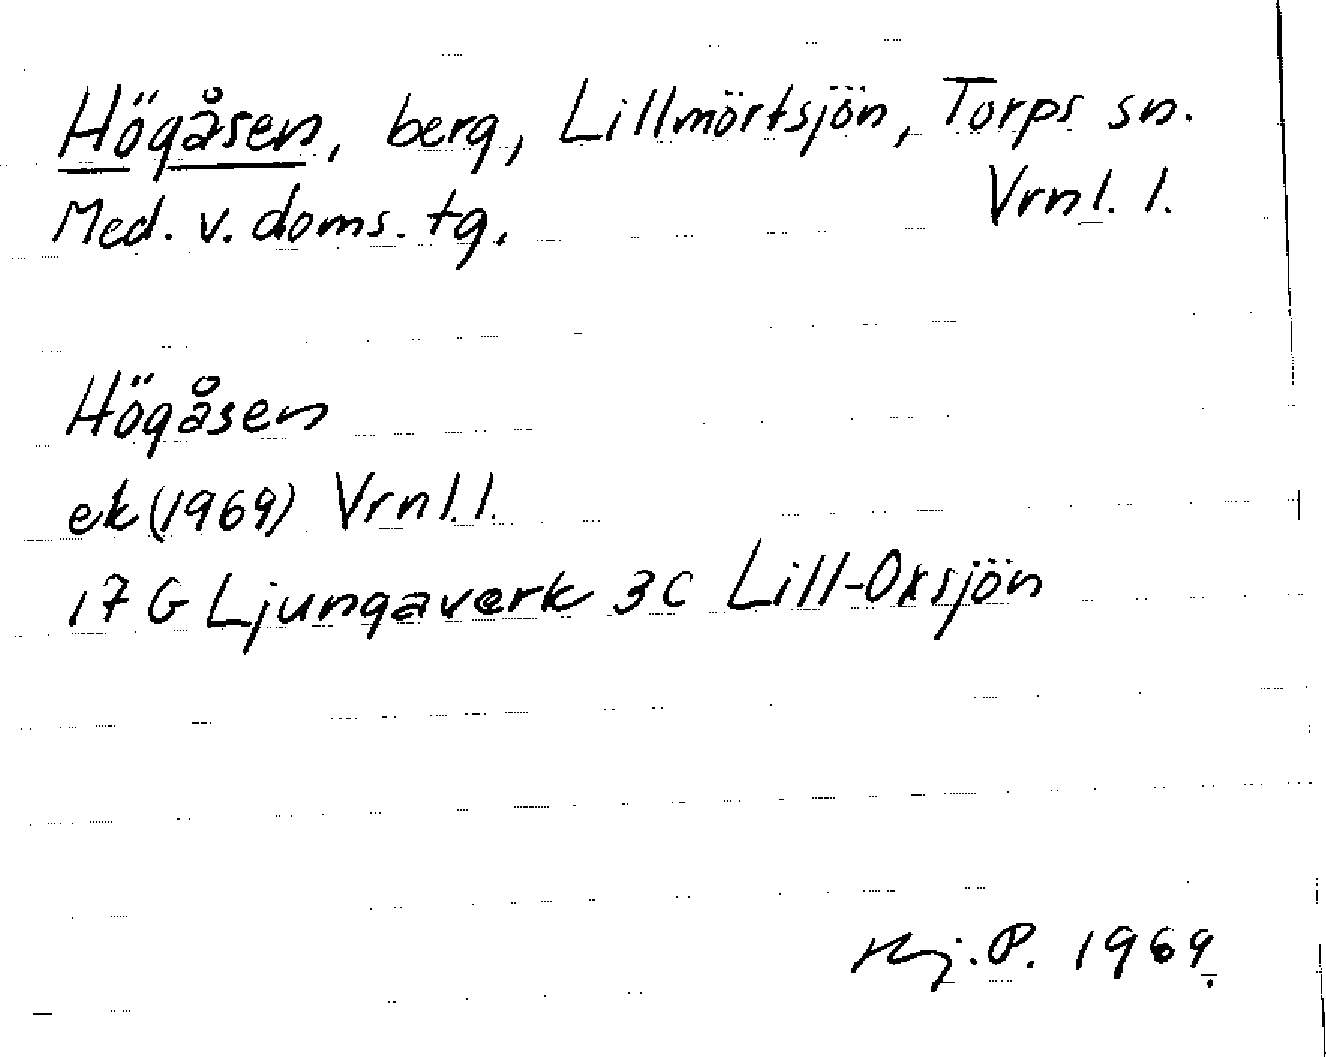 Högåsen, berg, Lillmörtsjön, Torps sn.
Med. v. doms. tg. Vrnl. l.
Högåsen
ek (1969) Vrnl. l.
17 G Ljungaverk 3 C Lill-Oxsjön
Hj. P. 1969.